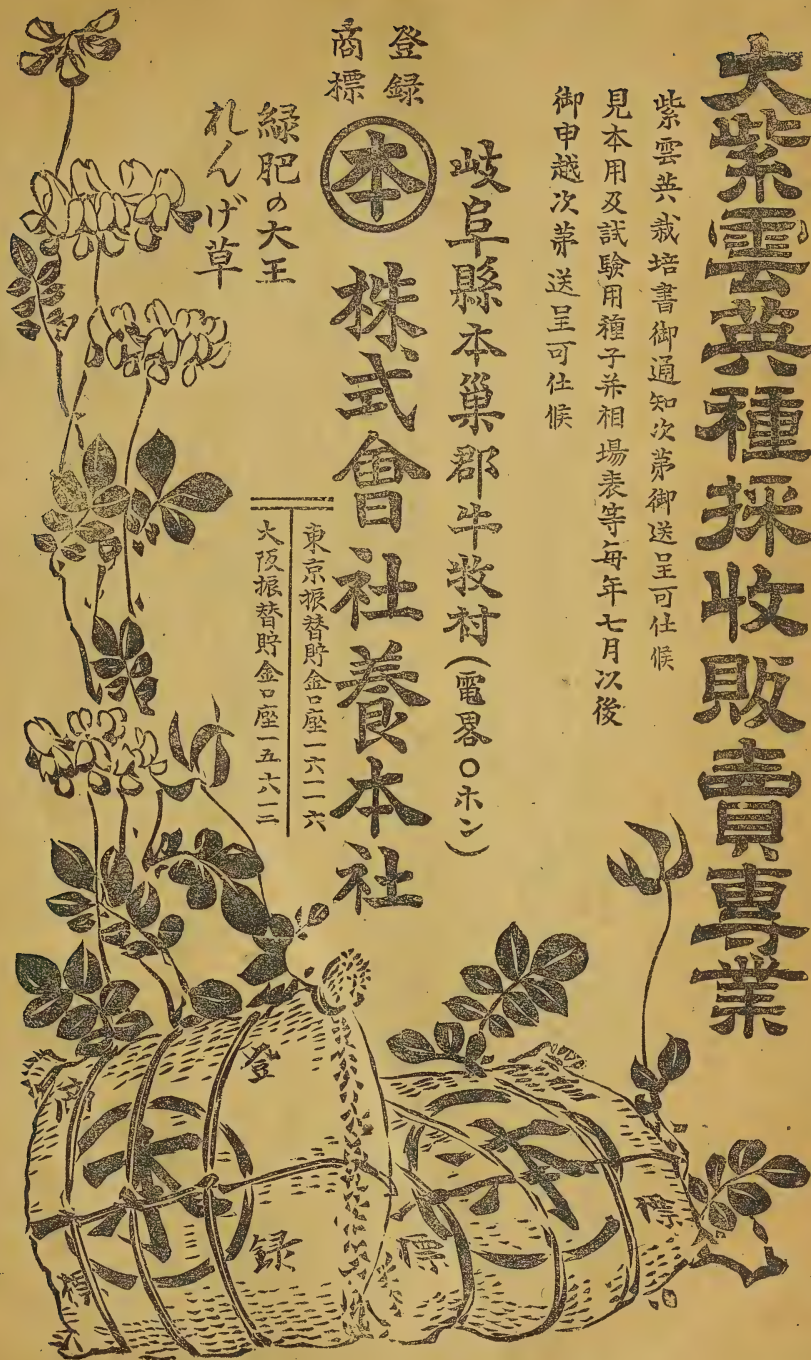 大紫雲英種採收販賣專業
紫雲英栽培書御通知次第御送呈可仕候
見本用及試驗用種子並相場表等每年七月以後
御申越次第送呈可仕候
岐阜縣本巢郡牛牧村(電畧〇ホン)
登録
商標
本 株式會社養本社
東京振替貯金口座一六一一六
大阪振替貯金口座一五六一二
緑肥の大王
れんげ草
登
録
商
標
本
本
標
標